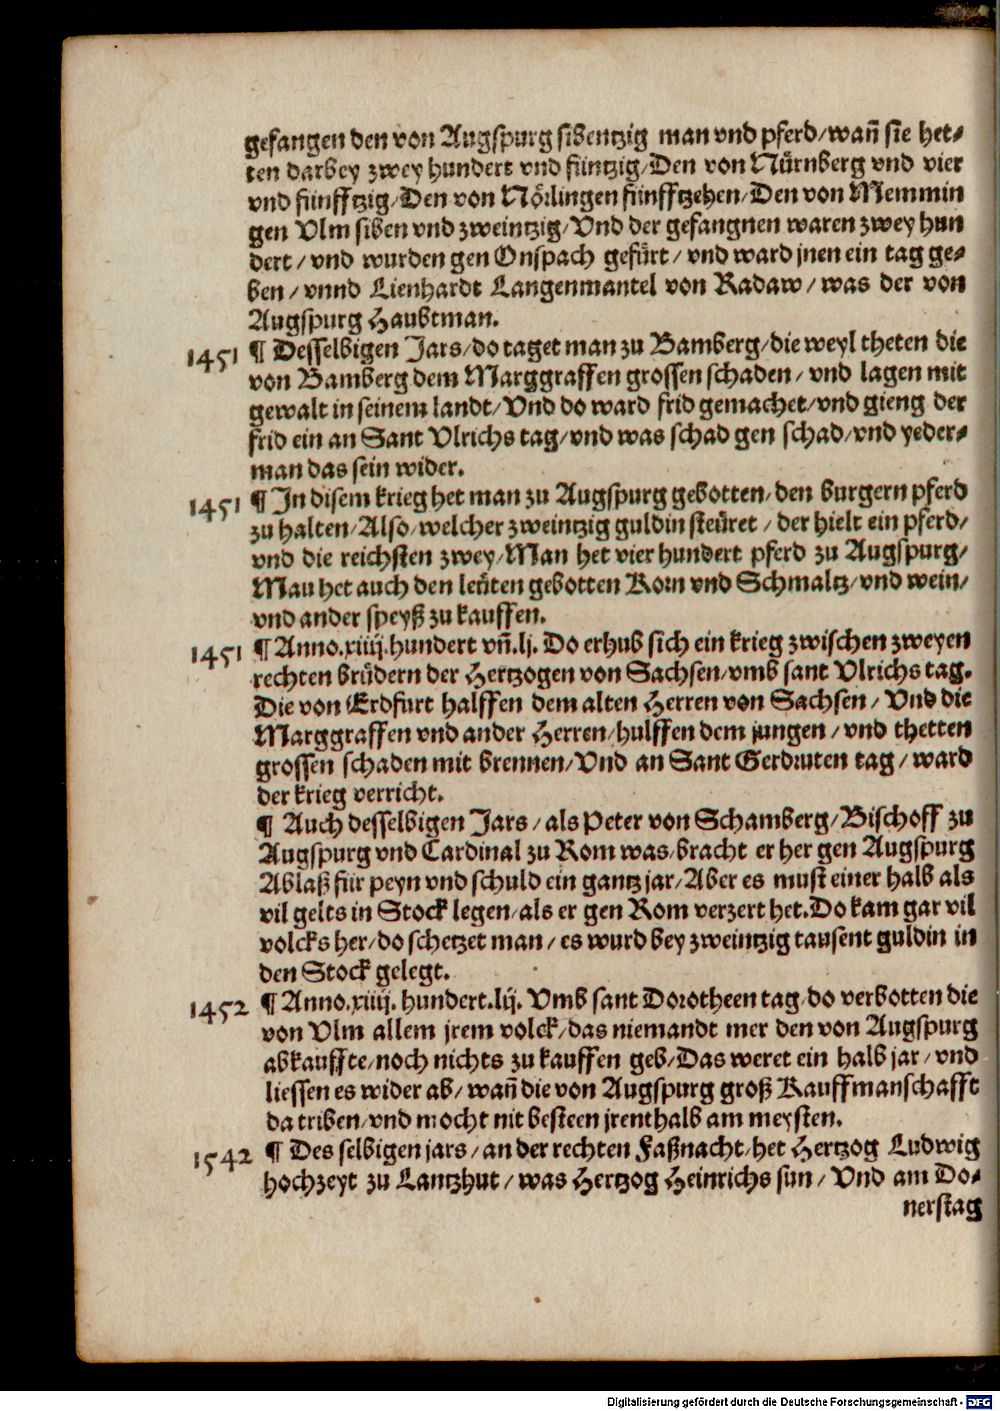 gefangen den von Augspurg sibentzig man vnd pferd/wañ sie het-
ten darbey zwey hundert vnd fünftzig/Den von Nürnberg vnd vier
vnd fünfftzig/Den von Nörlingen fünfftzehen/Den von Memmin
gen Vlm siben vnd zweintzig/Vnd der gefangnen waren zwey hun
dert/vnd wurden gen Onspach gefürt/vnd ward jnen ein tag ge-
ben/vnnd Lienhardt Langenmantel von Radaw/was der von
Augspurg Haubtman.
1451 ¶ Desselbigen Jars/do taget man zu Bamberg/die weyl theten die
von Bamberg dem Marggraffen grossen schaden/vnd lagen mit
gewalt in seinem landt/Vnd do ward frid gemachet/vnd gieng der
frid ein an Sant Vlrichs tag/vnd was schad gen schad/vnd yeder-
man das sein wider.
1451 ¶ In disem krieg het man zu Augspurg gebotten/den burgern pferd
zu halten/Also/welcher zweintzig guldin steüret/der hielt ein pferd/
vnd die reichsten zwey/Man het vier hundert pferd zu Augspurg/
Man het auch den leüten gebotten Korn vnd Schmaltz/vnd wein/
vnd ander speyß zu kauffen.
1451 ¶ Anno.xiiij.hundert vñ.lj. Do erhub sich ein krieg zwischen zweyen
rechten brüdern der Hertzogen von Sachsen/vmb sant Vlrichs tag.
Die von Erdfurt halffen dem alten Herren von Sachsen/Vnd die
Marggraffen vnd ander Herren/hulffen dem jungen/vnd thetten
grossen schaden mit brennen/Vnd an Sant Gerdruten tag/ward
der krieg verricht.
¶ Auch desselbigen Jars/als Peter von Schamberg/Bischoff zu
Augspurg vnd Cardinal zu Rom was/bracht er her gen Augspurg
Ablaß für peyn vnd schuld ein gantz jar/Aber es must einer halb als
vil gelts in Stock legen/als er gen Rom verzert het.Do kam gar vil
volcks her/do schetzet man/es wurd bey zweintzig tausent guldin in
den Stock gelegt.
1452 ¶ Anno.xiiij.hundert.lij. Vmb sant Dorotheen tag/do verbotten die
von Vlm allem jrem volck/das niemandt mer den von Augspurg
abkauffte/noch nichts zu kauffen geb/Das weret ein halb jar/vnd
liessen es wider ab/wañ die von Augspurg groß Kauffmanschafft
da triben/vnd mocht nit besteen jrenthalb am meysten.
1542 ¶ Des selbigen jars/an der rechten Faßnacht/het Hertzog Ludwig
hochzeyt zu Lantzhut/was Hertzog Heinrichs sun/Vnd am Do-
nerstag
Digitalisierung gefördert durch die Deutsche Forschungsgemeinschaft - DFG